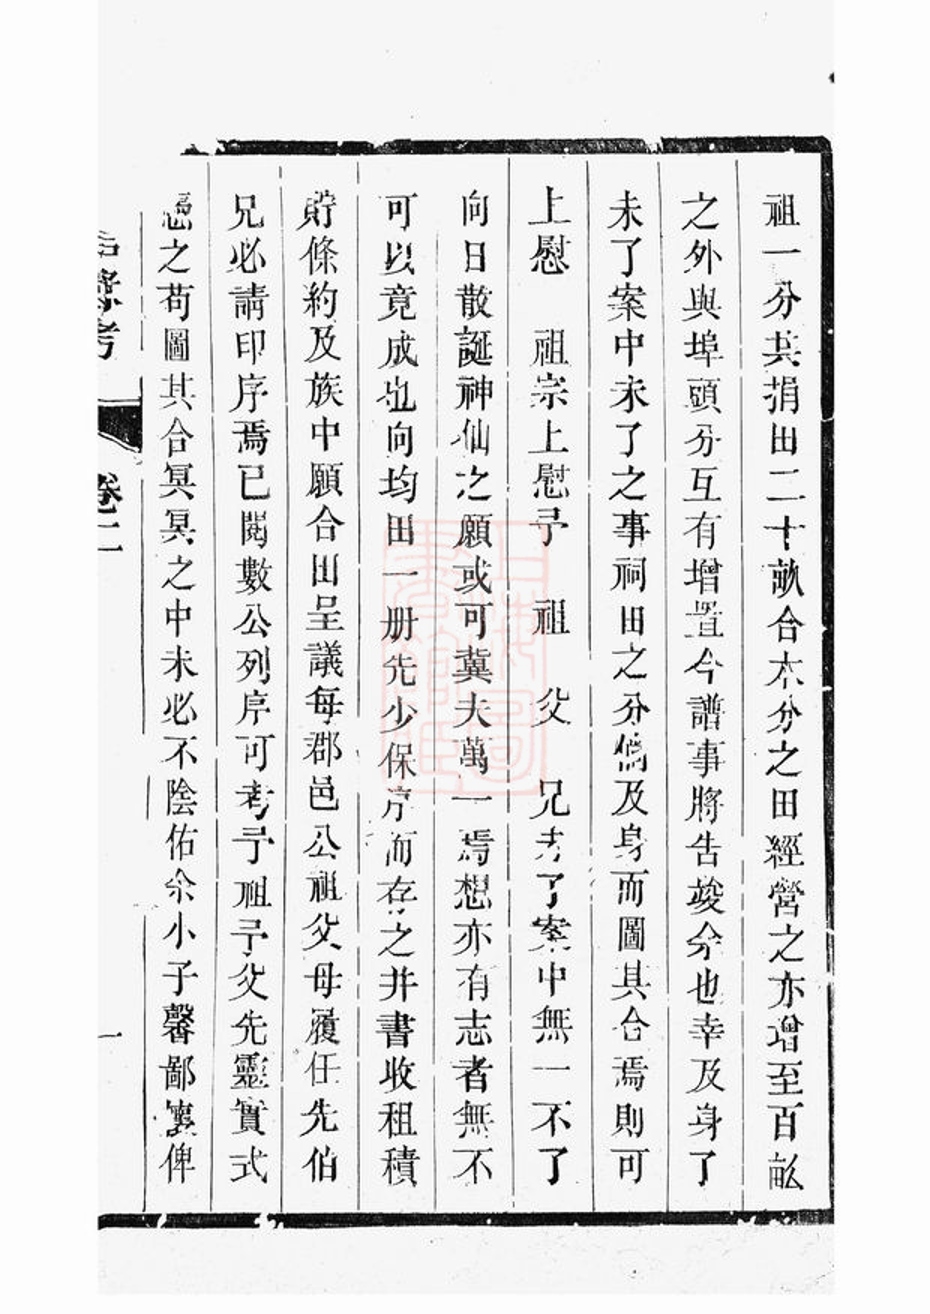 祖一分共捐田二十畝合本分之田經營之亦增至百畝
之外與埠頭分互有增置今譜事將告竣余也幸及身了
未了案中未了之事祠田之分儻及身而圖其合焉則可
上慰　祖宗上慰予　祖　父　兄未了案中無一不了
向日散誕神仙之願或可冀夫萬一焉想亦有志者無不
可以竟成也向均田一册先少保序而存之并書收租積
貯條約及族中願合田呈議每郡邑公祖父母履任先伯
兄必請印序焉已閱數公列序可考予祖予父先靈實式
憑之苟圖其合冥冥之中未必不陰佑余小子馨鄙襄俾
考
卷二
一